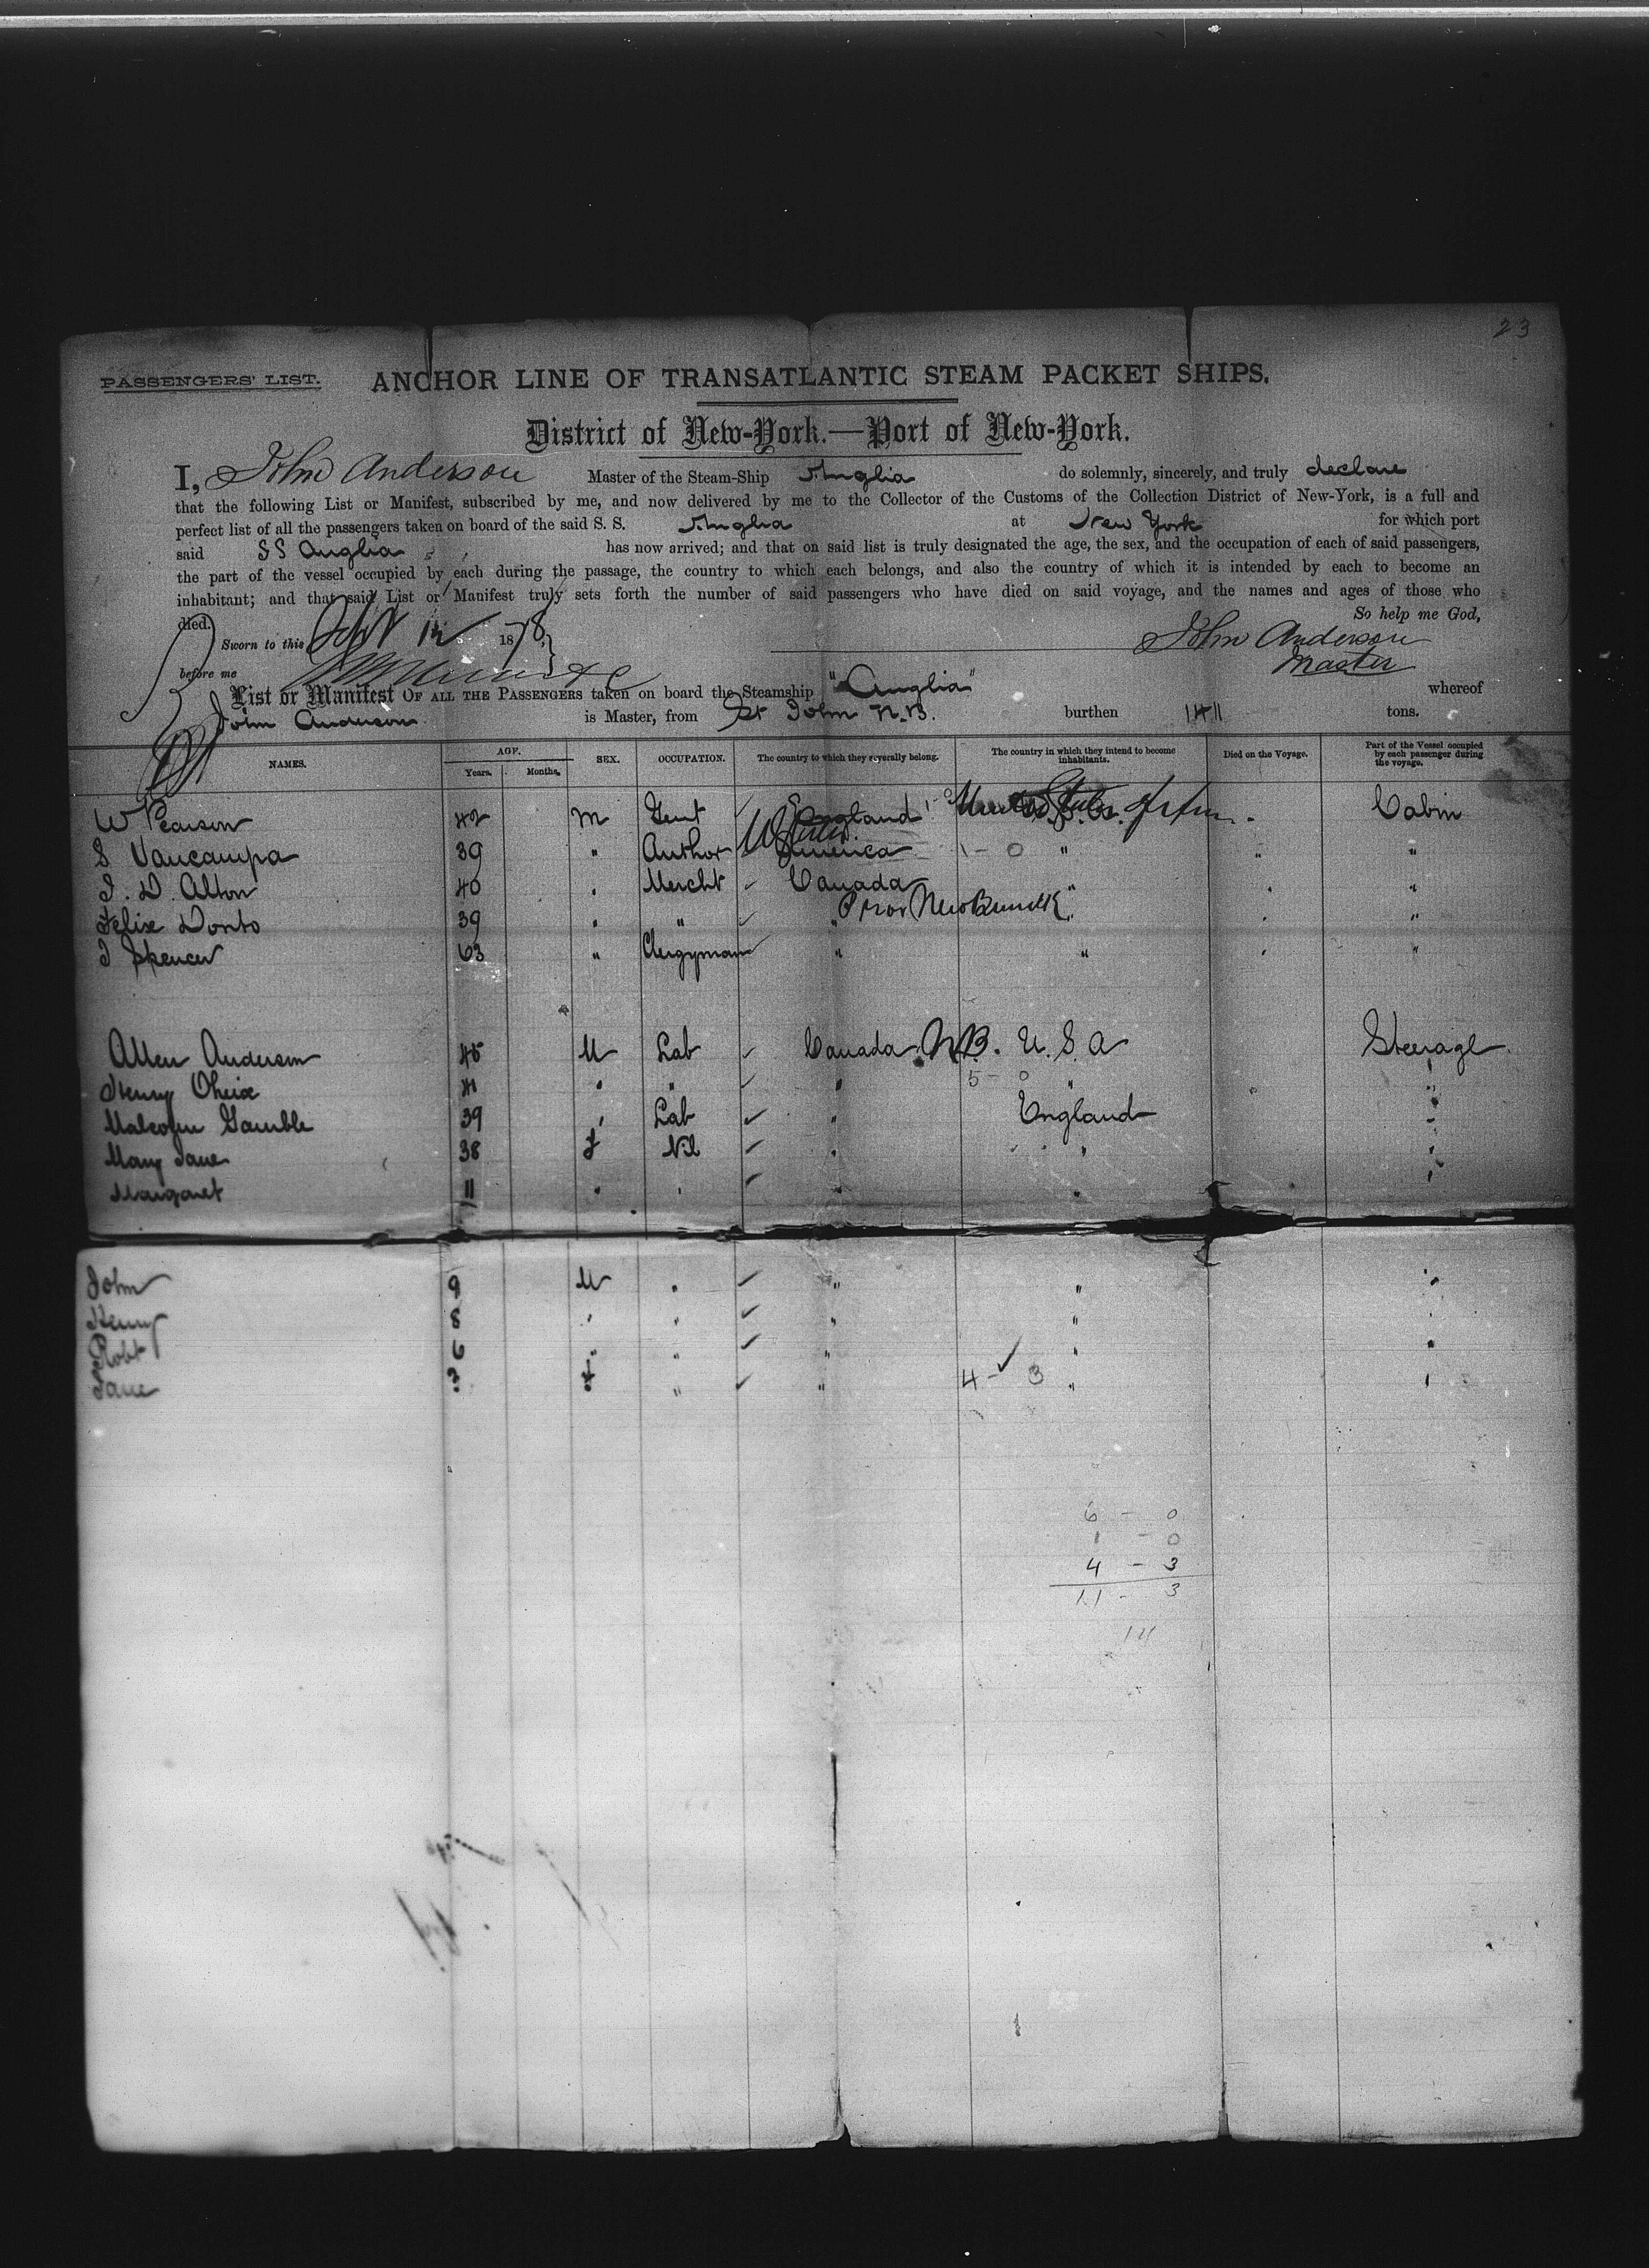 23
PASSENGERS' LIST. ANCHOR LINE OF TRANSATLANTIC STEAM PACKET SHIPS.
District of New-York.—Port of New-York.
I, John Anderson Master of the Steam-Ship Anglia do solemnly, sincerely, and truly declare
that the following List or Manifest, subscribed by me, and now delivered by me to the Collector of the Customs of the Collection District of New-York, is a full and
perfect list of all the passengers taken on board of the said S. S. Anglia at New York for which port
said SS Anglia has now arrived; and that on said list is truly designated the age, the sex, and the occupation of each of said passengers,
the part of the vessel occupied by each during the passage, the country to which each belongs, and also the country of which it is intended by each to become an
inhabitant; and that said List or Manifest truly sets forth the number of said passengers who have died on said voyage, and the names and ages of those who
died. So help me God,
Sworn to this 1878 John Anderson
before me Master
List or Manifest OF ALL THE PASSENGERS taken on board the Steamship "Anglia" whereof
John Anderson is Master, from St John N.B. burthen tons.
NAMES. AGE. Years. Months. SEX. OCCUPATION. The country to which they severally belong. The country in which they intend to become inhabitants. Died on the Voyage. Part of the Vessel occupied by each passenger during the voyage.
W Pearson 42 M Gent England 1-0 United States of Cabin
S Vancampa 39 " Author America 1-0 " " "
J. D. Alton 40 " Mercht Canada " " "
Felix 39 " " " Prov New Brunswk " " "
J Spencer 63 " Clergyman " " " "
Allen Anderson 45 M Lab Canada N.B. U.S.A Steerage
Henry 41 " " " 5-0 " "
Malcolm Gamble 39 " Lab " England "
Mary Jane 38 F Nil " " "
Margaret 11 " " " " "
John 9 M " " " "
Henry 8 " " " " "
Robt 6 " " " " "
Jane F " " 4-3 " "
6 - 0
1 - 0
4 - 3
11 - 3
14